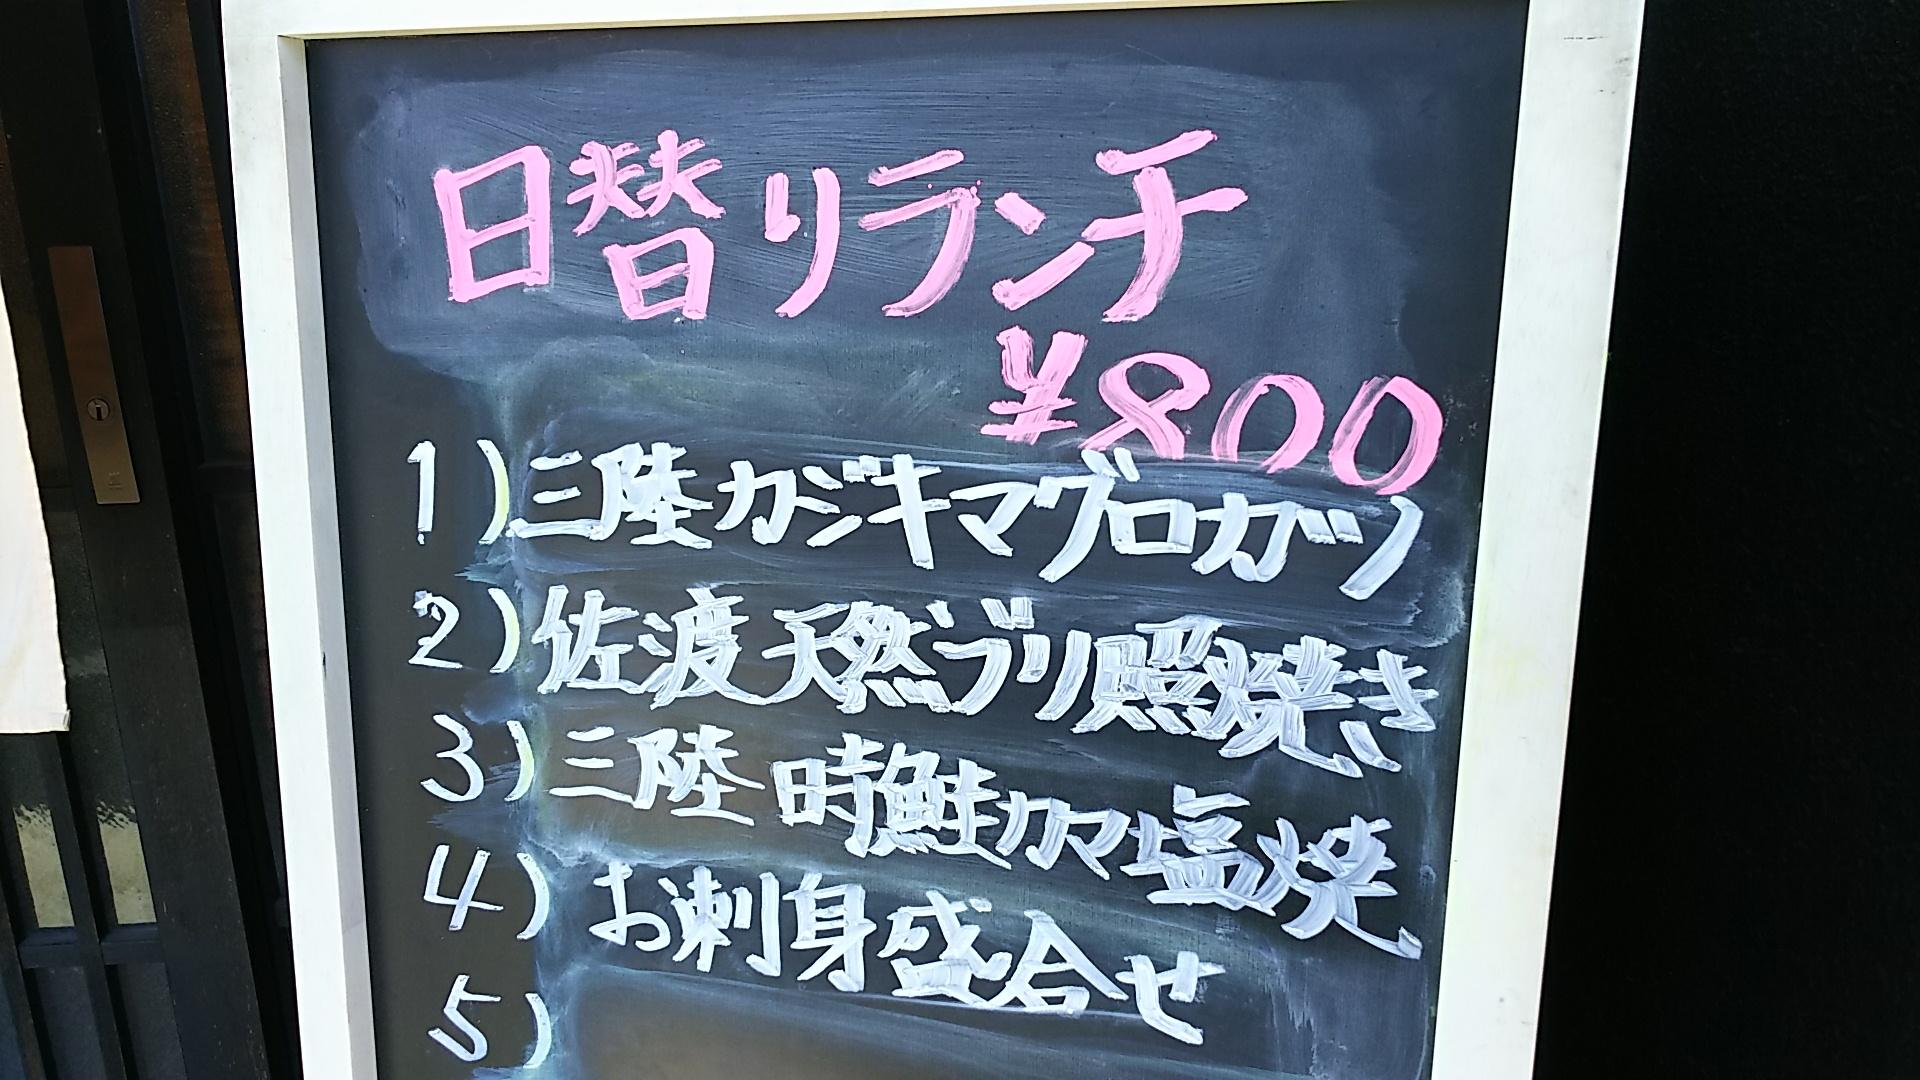 日替りランチ
¥800
1)三陸カジキマグロカツ
2)佐渡天然ブリ照焼き
3)三陸時鮭カマ塩焼
4)お刺身盛合せ
5)